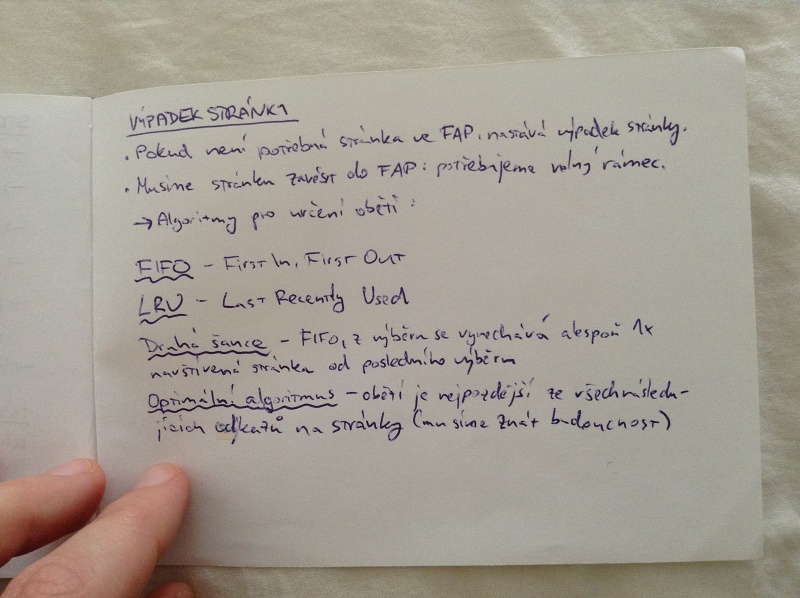 VÝPADEK STRÁNKY
• Pokud není potřebná stránka ve FAP, nastává výpadek stránky.
• Musíme stránku zavést do FAP: potřebujeme volný rámec.
→ Algoritmy pro určení oběti:
FIFO – First In, First Out
LRU – Last Recently Used
Druhá šance – FIFO, z výběru se vynechává alespoň 1x
navštívená stránka od posledního výběru
Optimální algoritmus – obětí je nejpozdější ze všech následu-
jících odkazů na stránky (musíme znát budoucnost)